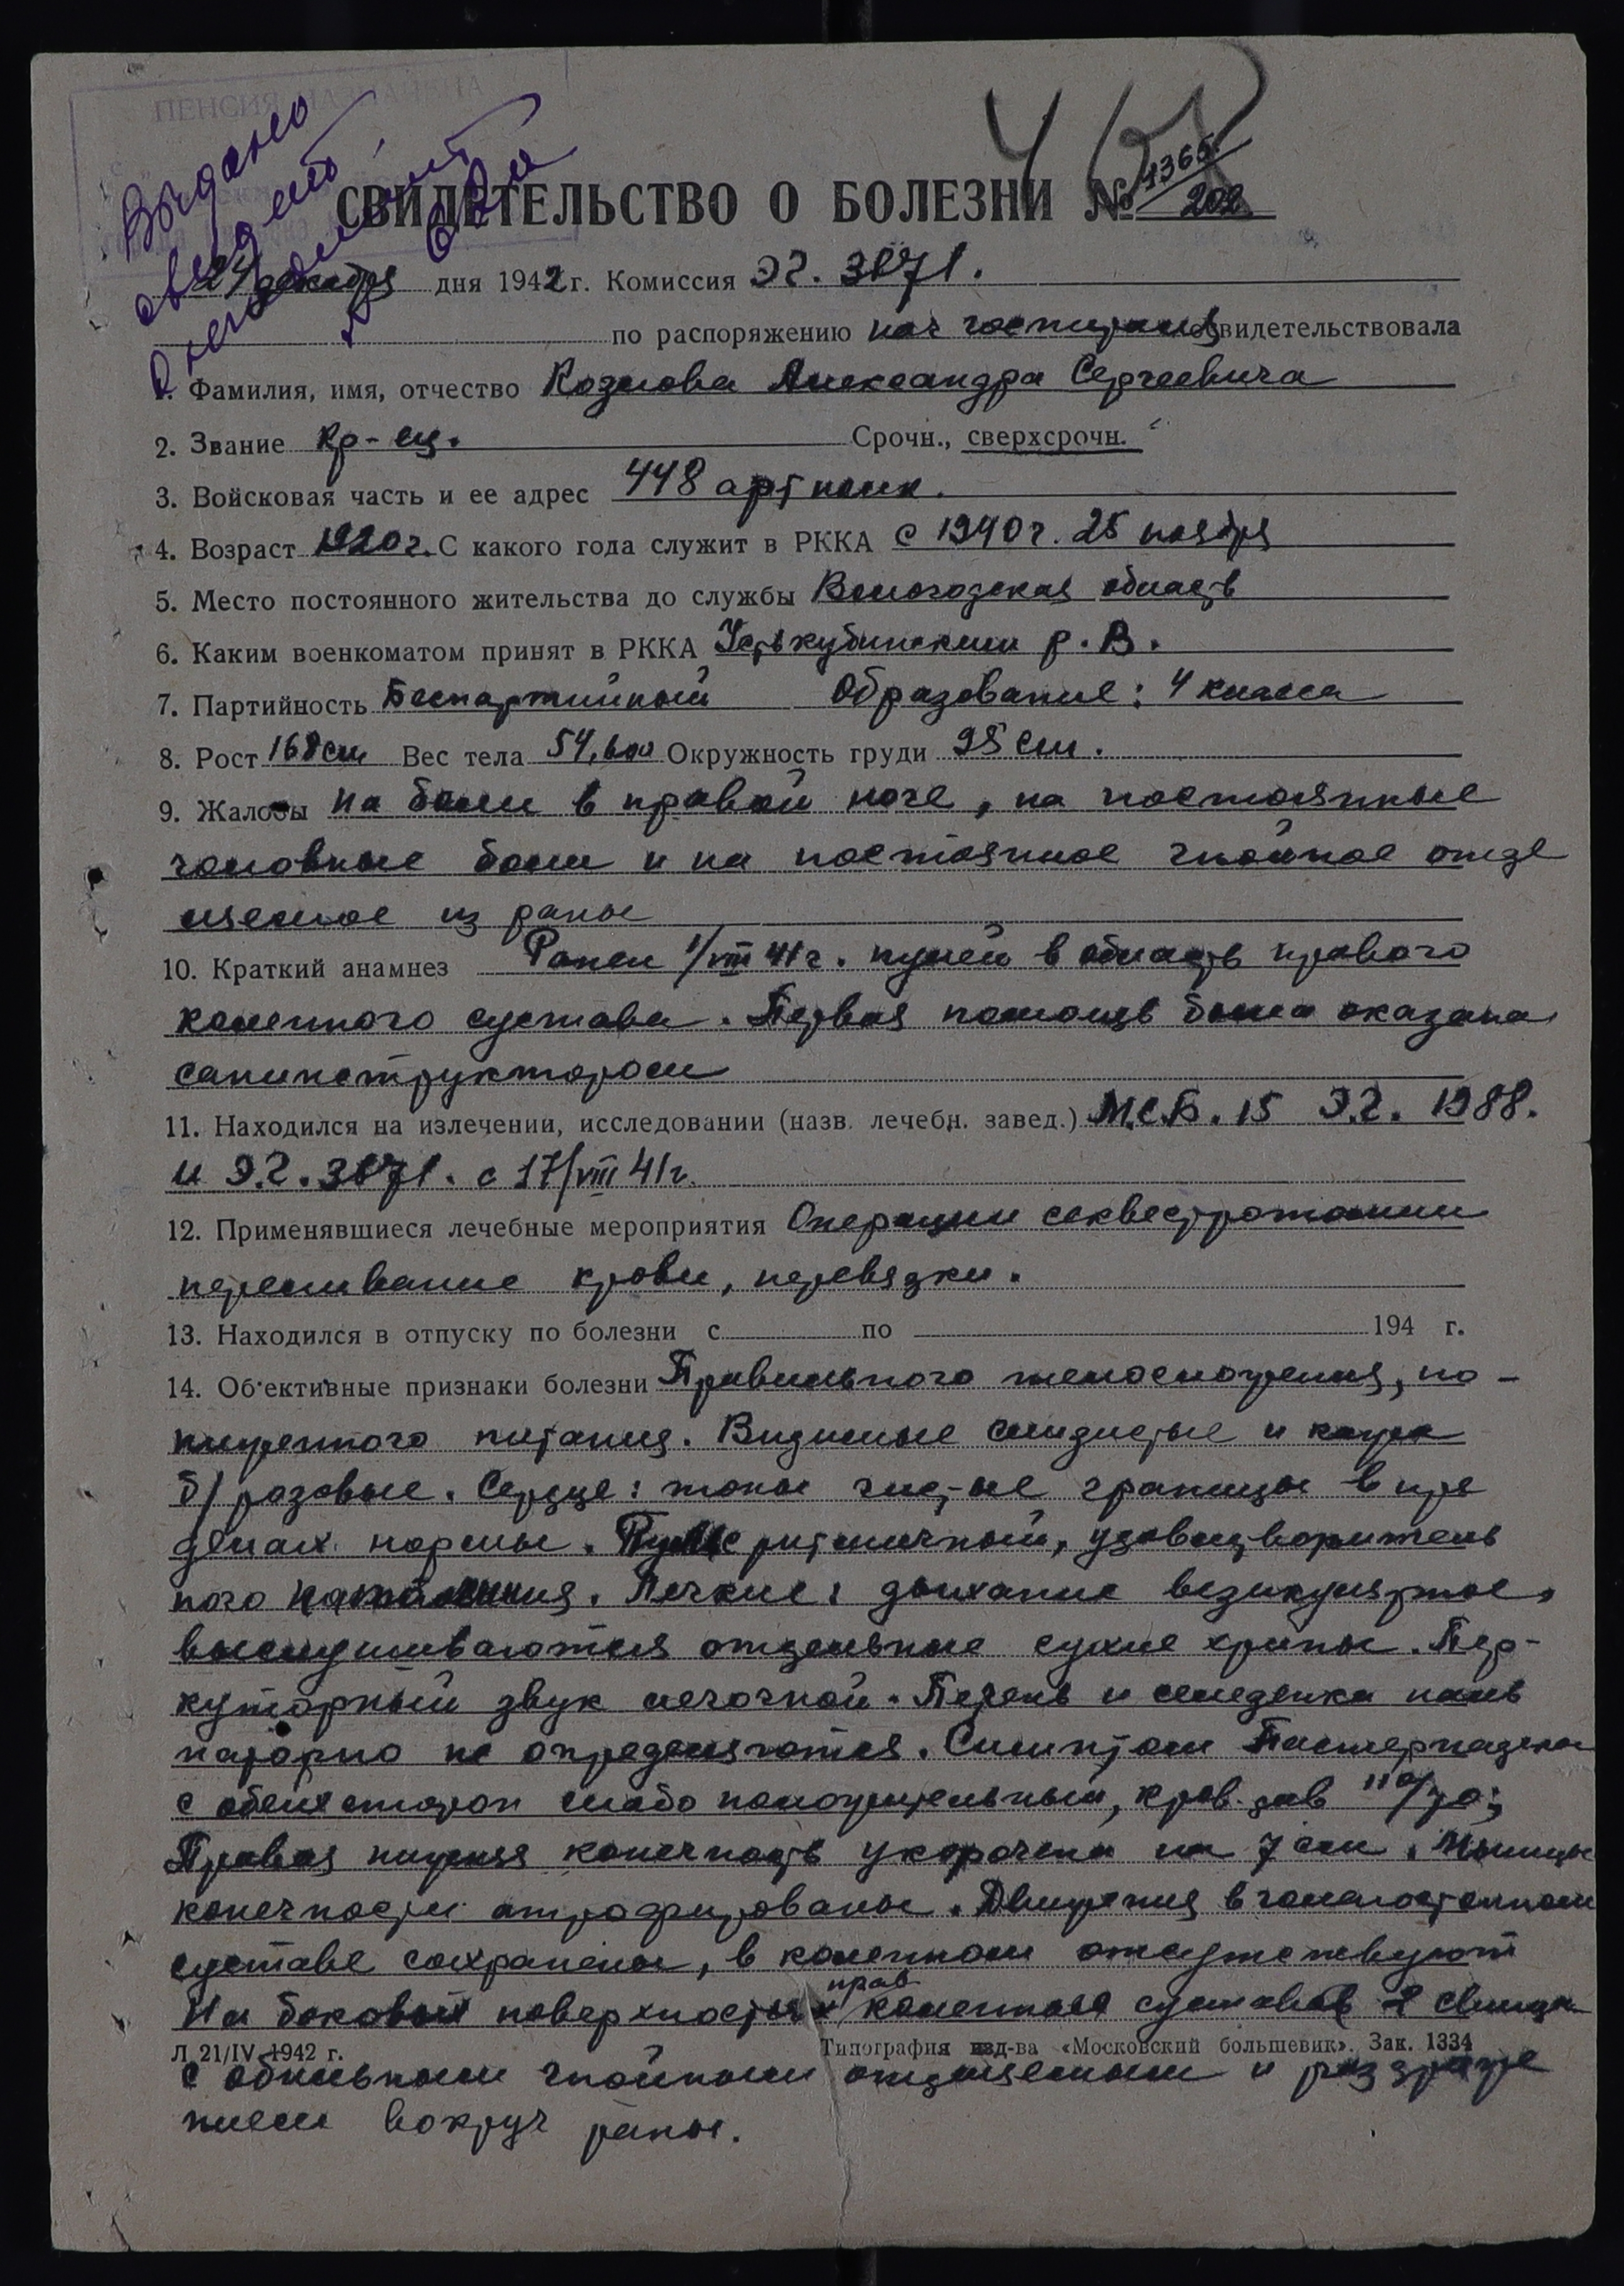 ПЕНСИЯ НАЗНАЧЕНА
Выдано
СВИДЕТЕЛЬСТВО О БОЛЕЗНИ № 4366/202
24 декабря дня 1942 г. Комиссия ЭГ. 3871.
по распоряжению нач госпиталя освидетельствовала
1. Фамилия, имя, отчество Козлова Александра Сергеевича
2. Звание Кр-ец. Срочн., сверхсрочн.
3. Войсковая часть и ее адрес 448 арт полк.
4. Возраст 1920 г. С какого года служит в РККА с 1940 г. 25 ноября
5. Место постоянного жительства до службы Вологодская область
6. Каким военкоматом принят в РККА Устькубинским Р.В.
7. Партийность Беспартийный Образование: 4 класса
8. Рост 168 см Вес тела 54,600 Окружность груди 95 см.
9. Жалобы На боли в правой ноге, на постоянные
головные боли и на постоянное гнойное отде
ляемое из раны
10. Краткий анамнез Ранен 1/VIII 41 г. пулей в область правого
коленного сустава. Первая помощь была оказана
санинструктором
11. Находился на излечении, исследовании (назв. лечебн. завед.) М.С.Б. 15 Э.Г. 1988.
и Э.Г. 3871. с 17/VIII 41 г.
12. Применявшиеся лечебные мероприятия Операции секвестротомии
переливание крови, перевязки.
13. Находился в отпуску по болезни с по 194 г.
14. Об'ективные признаки болезни Правильного телосложения, по-
ниженного питания. Видимые слизистые и кожа
б/розовые. Сердце: тоны чистые границы в пре
делах нормы. Пульс ритмичный, удовлетворитель
ного наполнения. Легкие: дыхание везикулярное,
выслушиваются отдельные сухие хрипы. Пер-
куторный звук легочной. Печень и селезенка паль
паторно не определяются. Симптом Пастернацкого
с обеих сторон слабо положительный, кров. дав 110/70;
Правая нижняя конечность укорочена на 7 см. Мышцы
конечности атрофированы. Движения в голеностопном
суставе сохранены, в коленном отсутствуют
прав.
На боковых поверхностях коленного суставов 2 свища
Л 21/IV 1942 г. Типография изд-ва «Московский большевик». Зак. 1334
с обильным гнойным отделяемым и раздраже
нием вокруг раны.